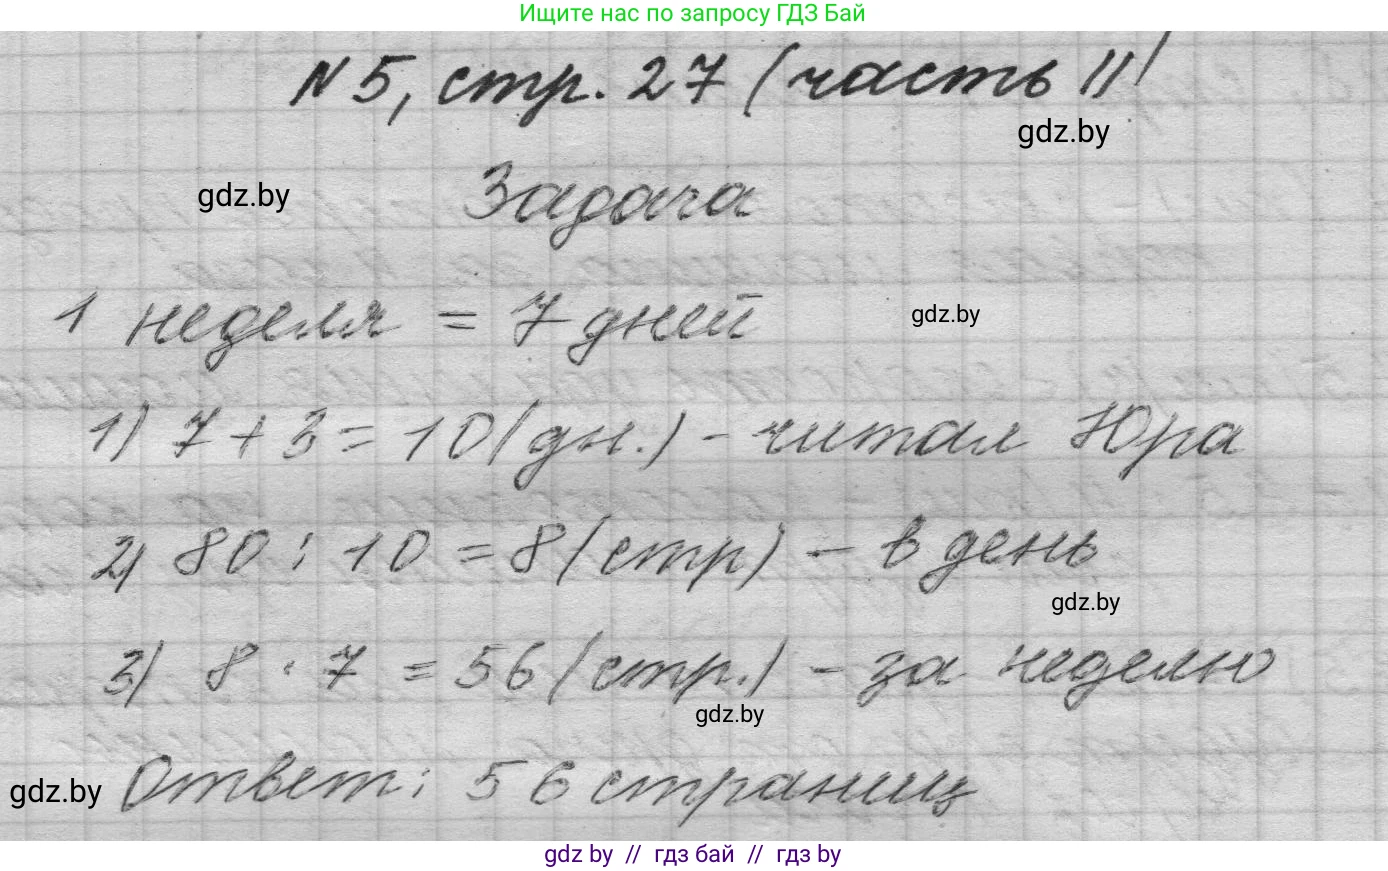 Ищите нас по запросу ГДЗ Бай
№5, стр. 27 (часть II)
gdz.by
gdz.by
Задача
1 неделя = 7 дней
gdz.by
1) 7 + 3 = 10 (дн.) - читал Юра
2) 80 : 10 = 8 (стр) - в день
gdz.by
3) 8 · 7 = 56 (стр.) - за неделю
gdz.by
gdz.by
Ответ: 56 страниц
gdz by // гдз бай // гдз by